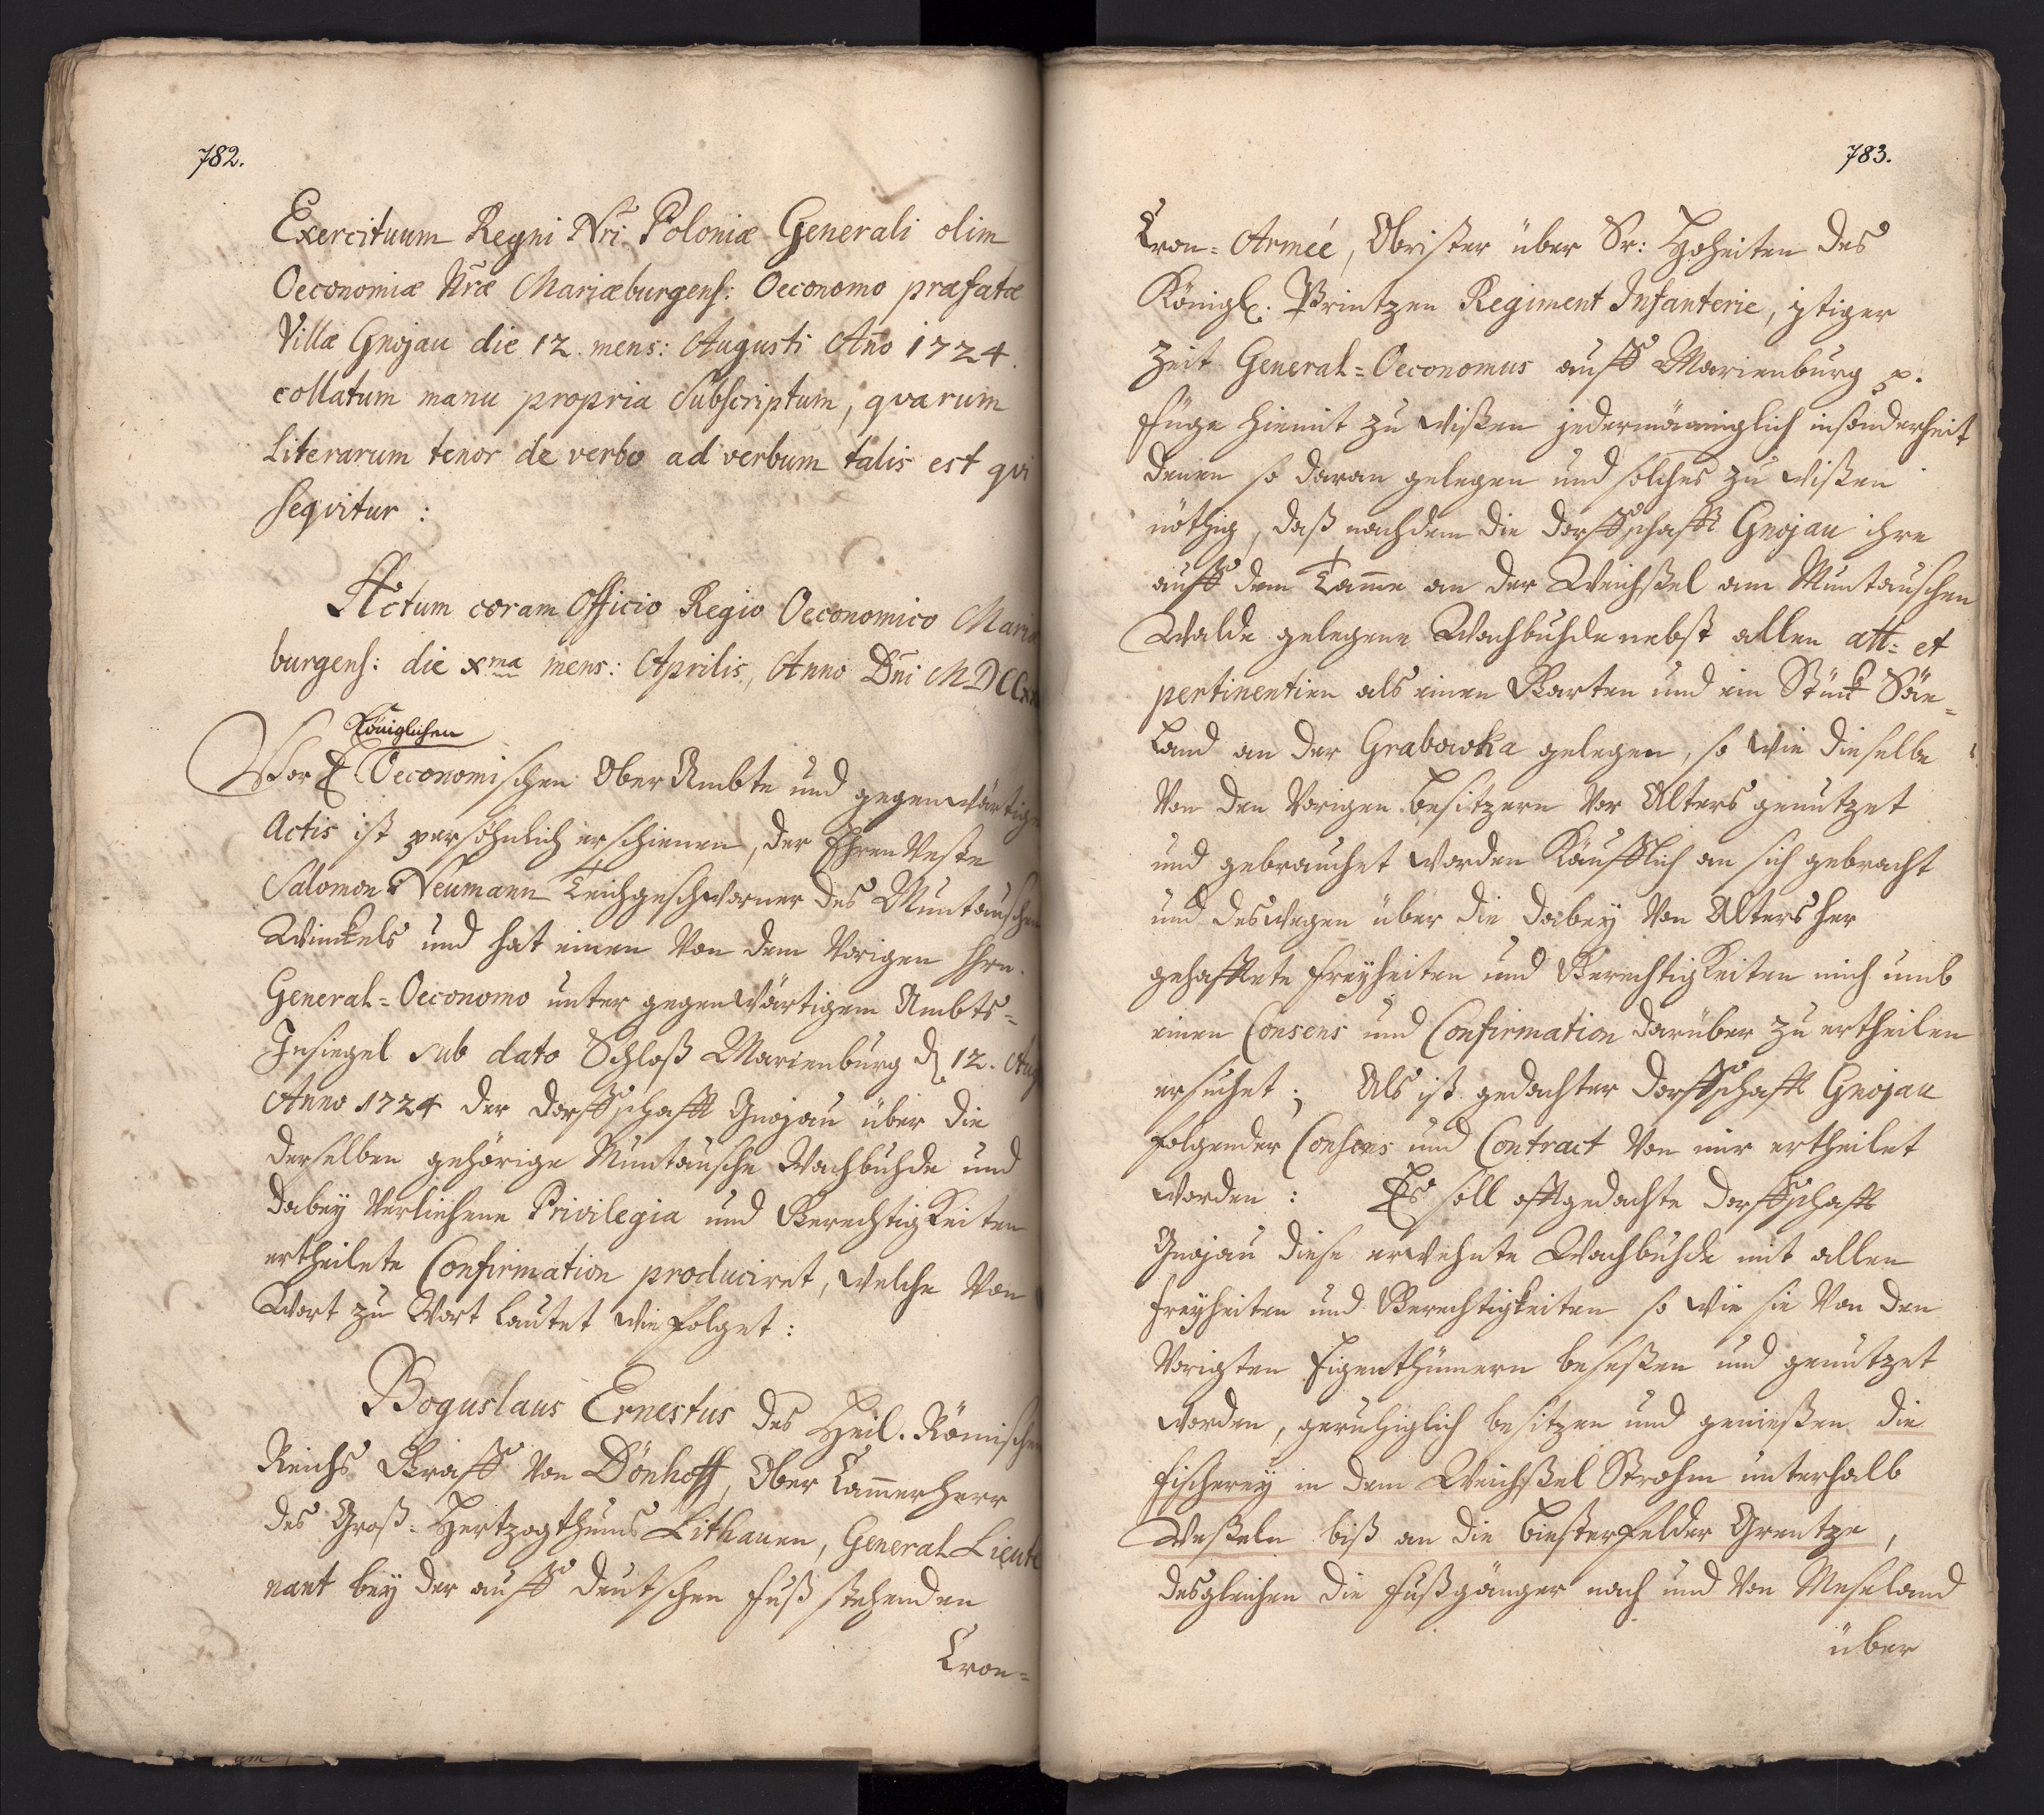 782.
Exercituum Regni Nri Poloniæ Generali olim
Oeconomiæ Nræ Mariæburgens: Oeconomo præfatæ
Villæ Gnojau die 12. mens: Augusti Año 1724.
collatum manu propria Subscriptum, qvarum
Literarum tenor de verbo ad verbum talis est qvi
seqvitur:
Actum coram Officio Regio Oeconomico Mariæ
burgens: die xma mens: Aprilis, Anno Dni MDCC
Königlichen
Vor E. Oeconomischen Ober Ambte und gegenwärtigen
Actis ist persöhnlich erschienen, der Ehren Veste
Salomon Neumann Teichgeschworner des Muntauschen
Winckels und hat einen von dem Vorigen Hhrn.
General-Oeconomo unter gegenwärtigem Ambts-
Insiegel sub dato Schloß Marienburg d 12. Aug
Anno 1724 der Dorffschafft Gnojau über die
derselben gehörige Muntausche Wachbuhde und
dabey Verliehene Privilegia und Gerechtigkeiten
ertheilete Confirmation produciret, welche Von
Wort zu Wort lautet wie folget:
Boguslaus Ernestus des Heil. Römischen
Reichs Graff von Dönhoff, Ober Cammerherr
des Groß-Hertzogthums Lithauen, General Lieute
nant bey der auff deutschen Fuß stehenden
Cron-
783.
Cron-Armeé, Obrister über Sr: Hoheiten des
Königl: Printzen Regiment Infanterie, itziger
Zeit General-Oeconomus auff Marienburg p.
Füge hiemit zu wißen jedermänniglich insonderheit
denen so daran gelegen und solches zu wißen
nöthig, daß nachdem die Dorffschafft Gnojau ihre
auff dem Tamme an der Weichßel am Muntauschen
Walde gelegene Wachbuhde nebst allen att- et
pertinentien als einen Garten und ein Stück Säe-
Land an der Grabowka gelegen, so wie dieselbe
von den Vorigen Besitzern Vor Alters genutzet
und gebrauchet worden Käufflich an sich gebracht
und deswegen über die dabey von Alters her
gehafftete Freyheiten und Gerechtigkeiten mich umb
einen Consens und Confirmation darüber zu ertheilen
ersuchet; Als ist gedachter Dorffschafft Gnojau
folgender Consens und Contract von mir ertheilet
worden: Es soll offtgedachte Dorffschafft
Gnojau diese erwehnte Wachbuhde mit allen
Freyheiten und Gerechtigkeiten so wie sie von den
Vorigten Eigenthümern beseßen und genutzet
worden, geruhiglich besitzen und genießen die
Fischerey in dem Weichßel Strohm unterhalb
Weßeln biß an die Biesterfelder Grentze,
desgleichen die Fußgänger nach und von Meseland
über